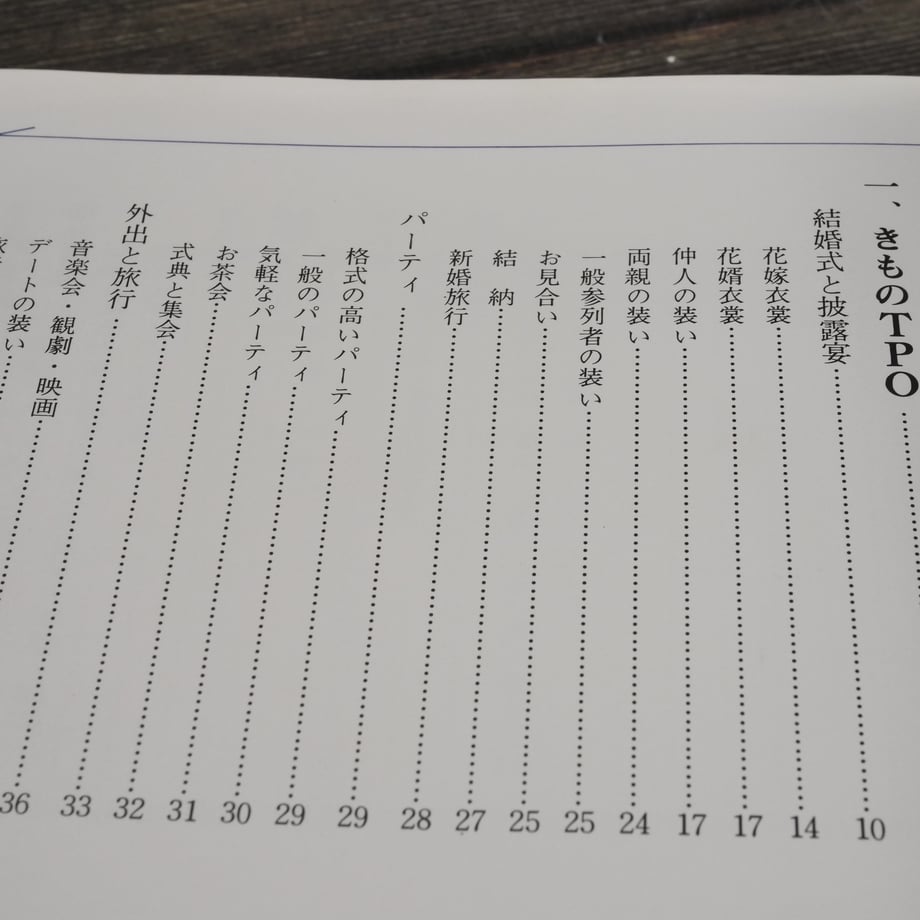 一、きものTPO……
結婚式と披露宴……10
花嫁衣裳……14
花婿衣裳……17
仲人の装い……17
両親の装い……24
一般参列者の装い……25
お見合い……25
結 納……27
新婚旅行……28
パーティ……29
格式の高いパーティ……29
一般のパーティ……30
気軽なパーティ……31
お茶会……32
式典と集会……33
外出と旅行……36
音楽会・観劇・映画……
デートの装い……